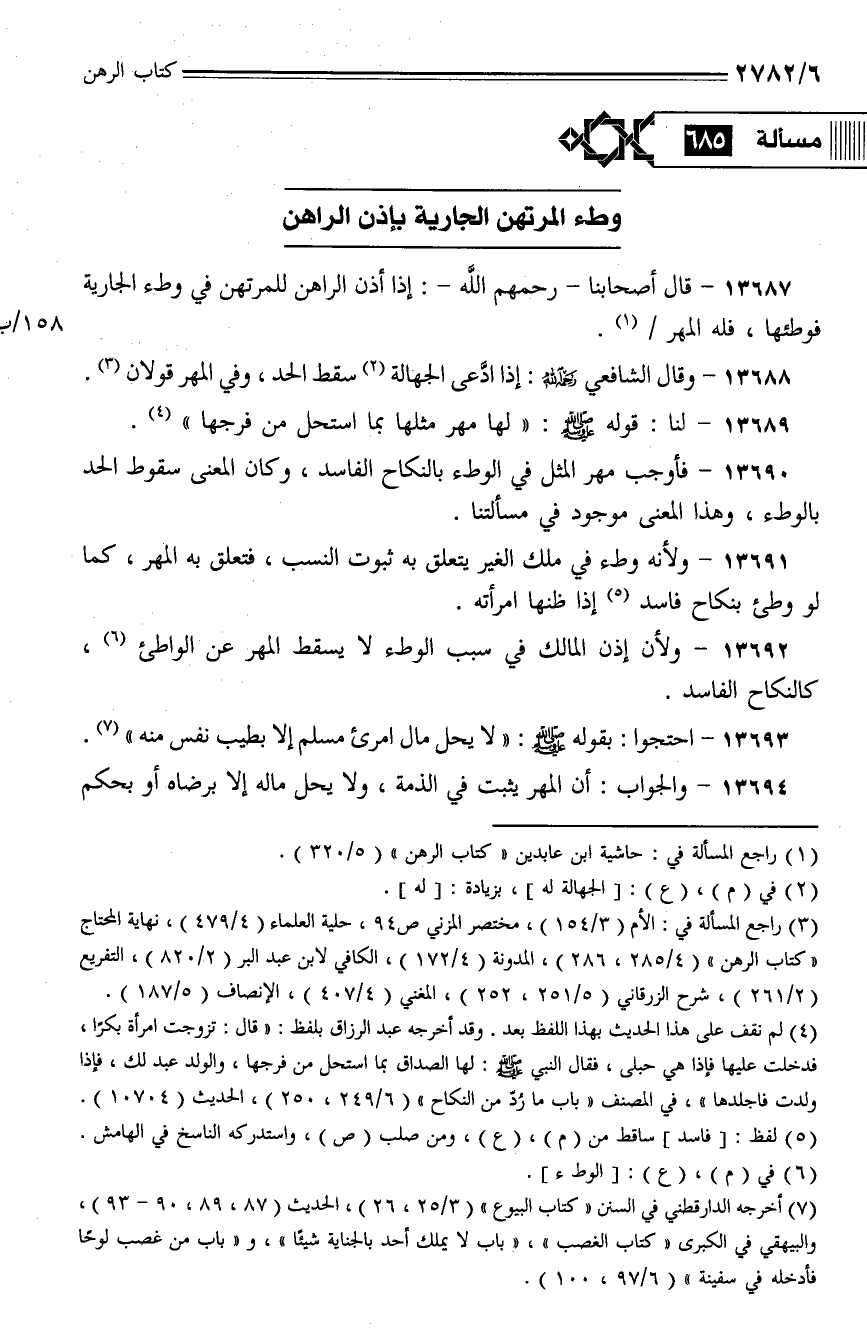 ٢٧٨٢/٦ كتاب الرهن
مسألة ٦٨٥
وطء المرتهن الجارية بإذن الراهن
١٣٦٨٧ - قال أصحابنا - رحمهم اللَّه - : إذا أذن الراهن للمرتهن في وطء الجارية
فوطئها ، فله المهر / (١) .
١٥٨/ب
١٣٦٨٨ - وقال الشافعي رحمه الله : إذا ادَّعى الجهالة (٢) سقط الحد ، وفي المهر قولان (٣) .
١٣٦٨٩ - لنا : قوله ﷺ : « لها مهر مثلها بما استحل من فرجها » (٤) .
١٣٦٩٠ - فأوجب مهر المثل في الوطء بالنكاح الفاسد ، وكان المعنى سقوط الحد
بالوطء ، وهذا المعنى موجود في مسألتنا .
١٣٦٩١ - ولأنه وطء في ملك الغير يتعلق به ثبوت النسب ، فتعلق به المهر ، كما
لو وطئ بنكاح فاسد (٥) إذا ظنها امرأته .
١٣٦٩٢ - ولأن إذن المالك في سبب الوطء لا يسقط المهر عن الواطئ (٦) ،
كالنكاح الفاسد .
١٣٦٩٣ - احتجوا : بقوله ﷺ : « لا يحل مال امرئ مسلم إلا بطيب نفس منه » (٧) .
١٣٦٩٤ - والجواب : أن المهر يثبت في الذمة ، ولا يحل ماله إلا برضاه أو بحكم
(١) راجع المسألة في : حاشية ابن عابدين « كتاب الرهن » ( ٣٢٠/٥ ) .
(٢) في ( م ) ، ( ع ) : [ الجهالة له ] ، بزيادة : [ له ] .
(٣) راجع المسألة في : الأم ( ١٥٤/٣ ) ، مختصر المزني ص٩٤ ، حلية العلماء ( ٤٧٩/٤ ) ، نهاية المحتاج
« كتاب الرهن » ( ٢٨٥/٤ ، ٢٨٦ ) ، المدونة ( ١٧٢/٤ ) ، الكافي لابن عبد البر ( ٨٢٠/٢ ) ، التفريع
( ٢٦١/٢ ) ، شرح الزرقاني ( ٢٥١/٥ ، ٢٥٢ ) ، المغني ( ٤٠٧/٤ ) ، الإنصاف ( ١٨٧/٥ ) .
(٤) لم نقف على هذا الحديث بهذا اللفظ بعد . وقد أخرجه عبد الرزاق بلفظ : « قال : تزوجت امرأة بكرًا ،
فدخلت عليها فإذا هي حبلى ، فقال النبي ﷺ : لها الصداق بما استحل من فرجها ، والولد عبد لك ، فإذا
ولدت فاجلدها » ، في المصنف « باب ما رُدّ من النكاح » ( ٢٤٩/٦ ، ٢٥٠ ) ، الحديث ( ١٠٧٠٤ ) .
(٥) لفظ : [ فاسد ] ساقط من ( م ) ، ( ع ) ، ومن صلب ( ص ) ، واستدركه الناسخ في الهامش .
(٦) في ( م ) ، ( ع ) : [ الوط ء ] .
(٧) أخرجه الدارقطني في السنن « كتاب البيوع » ( ٢٥/٣ ، ٢٦ ) ، الحديث ( ٨٧ ، ٨٩ ، ٩٠ - ٩٣ ) ،
والبيهقي في الكبرى « كتاب الغصب » ، « باب لا يملك أحد بالجناية شيئًا » ، و « باب من غصب لوحًا
فأدخله في سفينة » ( ٩٧/٦ ، ١٠٠ ) .